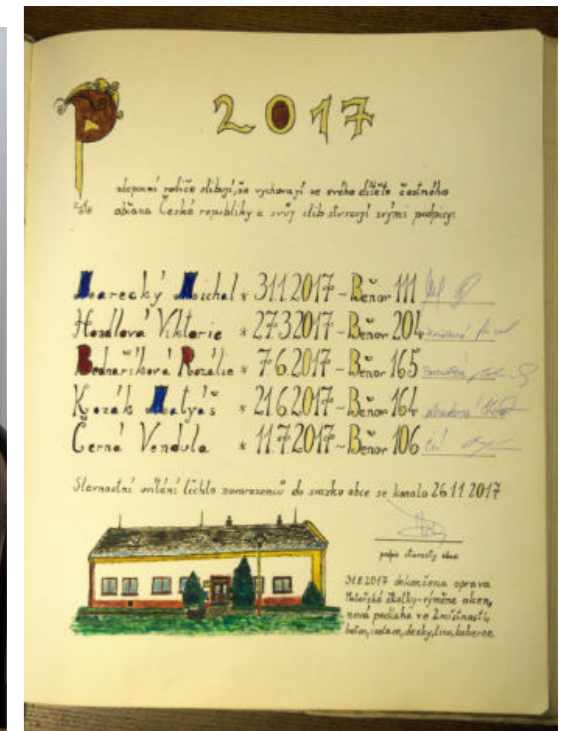 2017
P
Celé
podepsaní rodiče slibují, že vychovají ze svého dítěte čestného
občana České republiky a svůj slib stvrzují svými podpisy:
Marecký Michal * 31.1.2017 - Beňov 111
Hondlová Viktorie * 27.3.2017 - Beňov 204
Bednaříková Rozálie * 7.6.2017 - Beňov 165
Kozák Matyáš * 21.6.2017 - Beňov 164
Černá Vendula * 11.7.2017 - Beňov 106
Slavnostní vítání těchto novorozenců do svazku obce se konalo 26.11.2017
podpis starosty obce
31.8.2017 dokončena oprava
Mateřské školky - výměna oken,
nová podlaha ve 2 místnostech,
beton, izolace, desky, lino, koberce